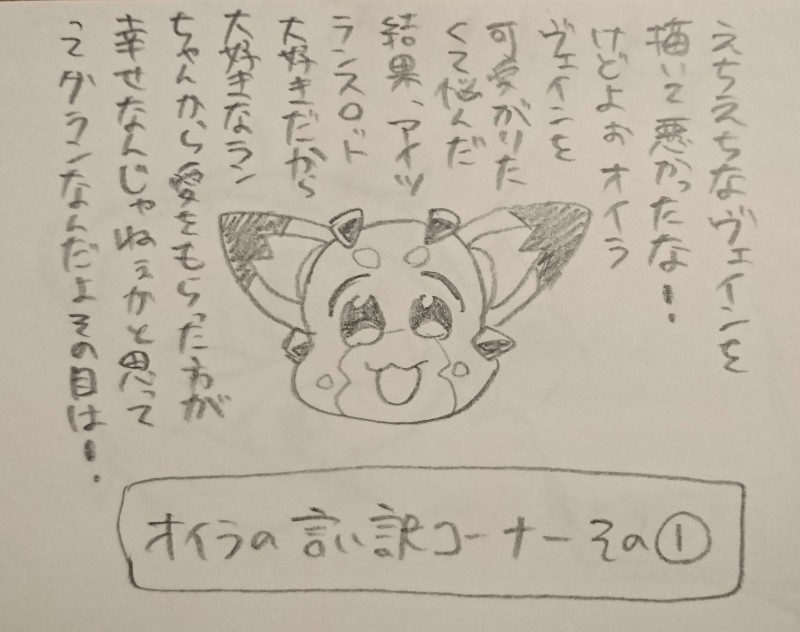 えちえちなヴェインを
描いて悪かったな!
けどよぉオイラ
ヴェインを
可愛がりた
くて悩んだ
結果、アイツ
ランスロット
大好きだから
大好きなラン
ちゃんから愛をもらった方が
幸せなんじゃねぇかと思って
ってダランなんだよその目は!
オイラの言い訳コーナーその①